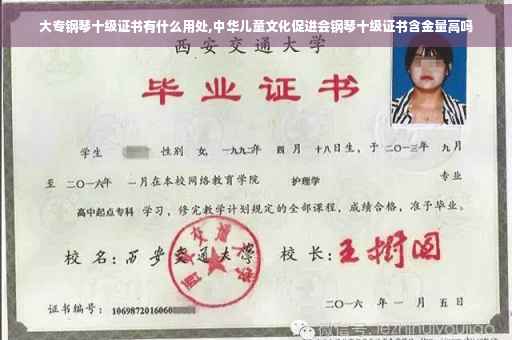 大专钢琴十级证书有什么用处,中华儿童文化促进会钢琴十级证书含金量高吗
西安交通大学
毕业证书
学生 性别 女, 一九九二年 四月 十八日生, 于二〇一三年 九月
至 二〇一六年 一月在本校网络教育学院 护理学 专业
高中起点专科 学习, 修完教学计划规定的全部课程, 成绩合格, 准予毕业。
校名: 西安交通大学 校长: 王树国
西安交通大学
证书编号: 1069872016060
二〇一六年 一月五日
微信号: jezhihuiyoujiao